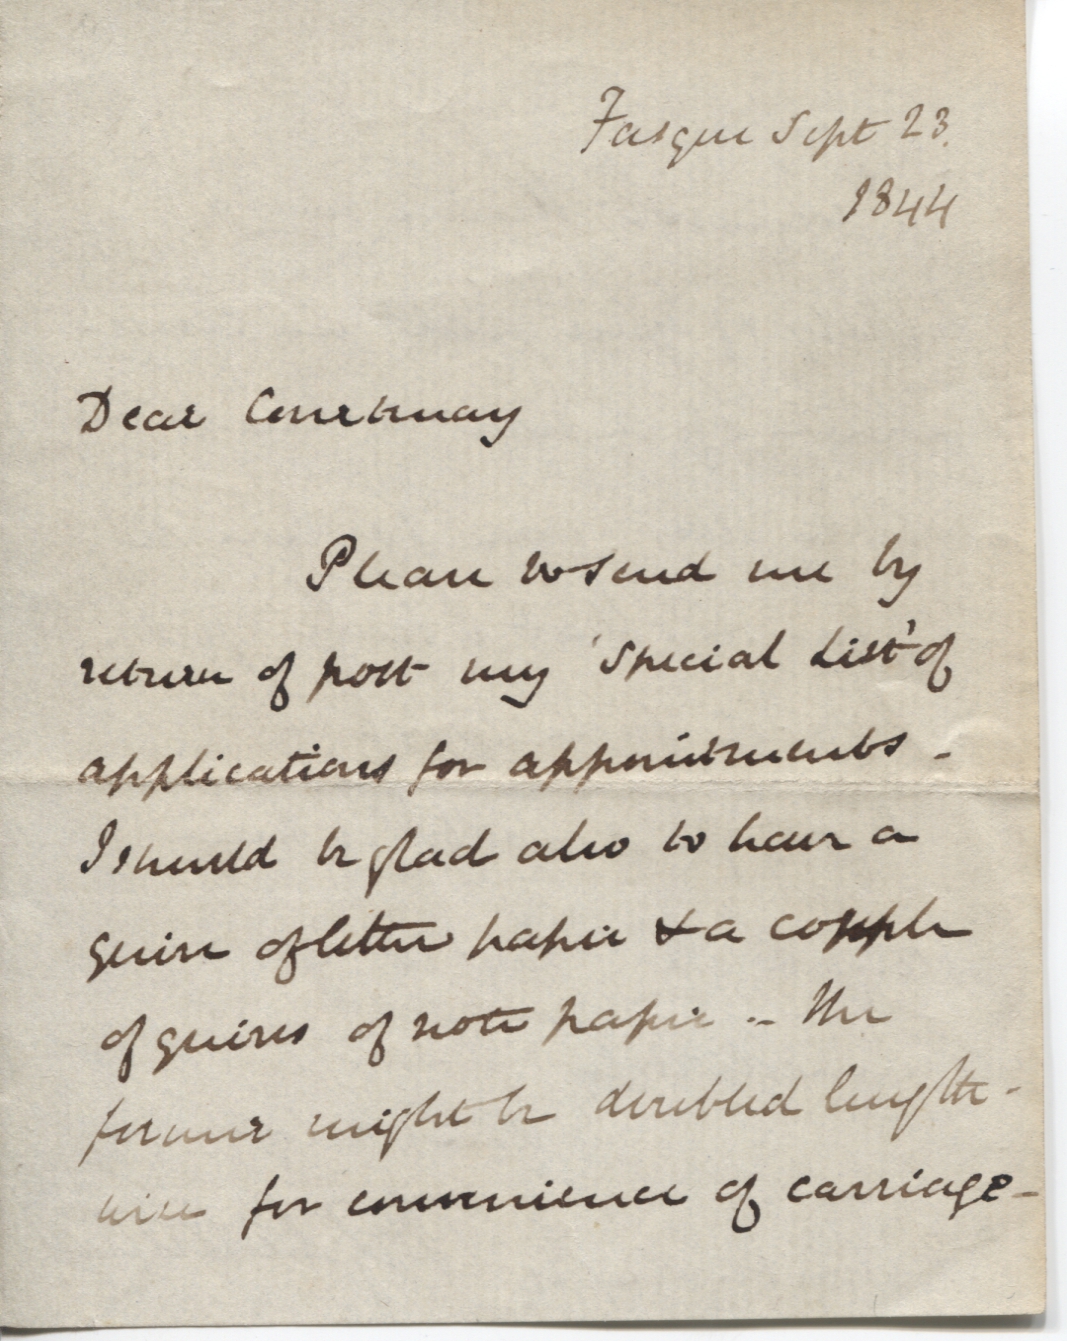 Fasque Sept 23.
1844
Dear Courtenay
Please to send me by
return of post my 'Special List' of
applications for appointments -
I should be glad also to have a
quire of letter paper & a couple
of quires of note paper .- The
former might be doubled length-
wise for convenience of carriage -